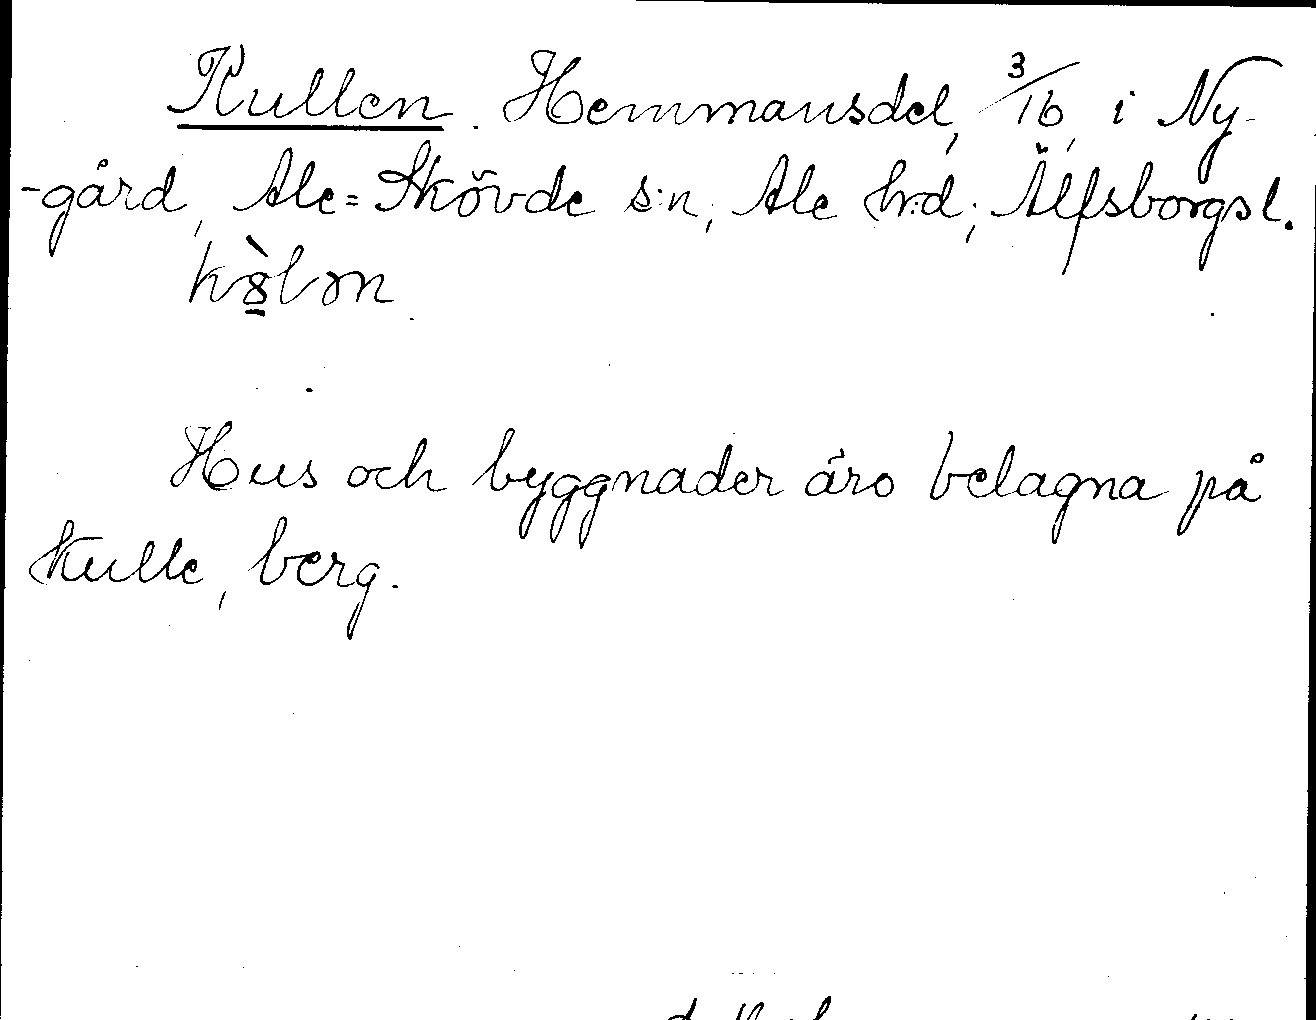 Kullen. Hemmansdel, 3/16, i Ny-
-gård, Ale=Skövde s:n, Ale h:d, Älfsborgs l.
Hus och byggnader äro belägna på
kulle, berg.